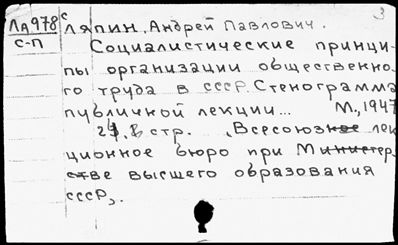 3
ЛД978 с Ляпин, Андрей Павлович.
С-П Социалистические принци-
пы организации общественно-
го труда в СССР. Стенограмма
публичной лекции... М., 1947
24, 8 стр. (Всесоюзное лек
ционное бюро при Министер-
стве высшего образования
СССР).